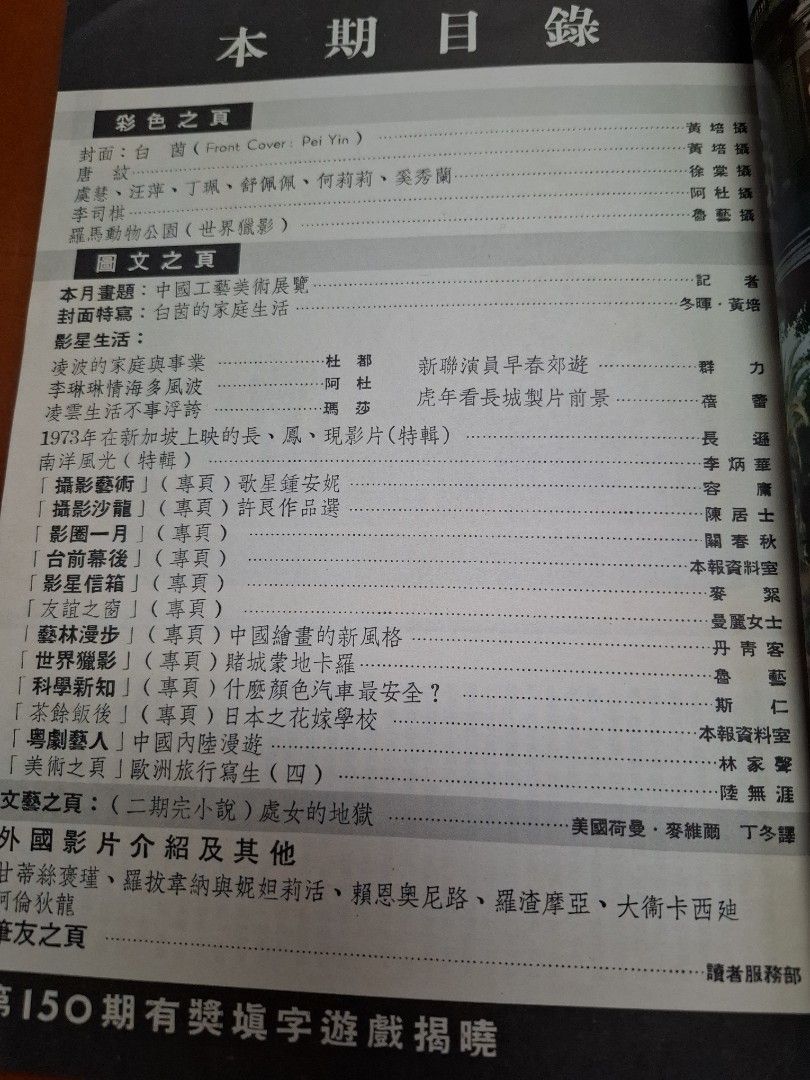 本期目錄
彩色之頁
封面：白　茵（Front Cover: Pei Yin）……黃培攝
唐　紋……黃培攝
虞慧、汪萍、丁珮、舒佩佩、何莉莉、奚秀蘭……徐棠攝
李司棋……阿杜攝
羅馬動物公園（世界獵影）……魯藝攝
圖文之頁
本月畫題：中國工藝美術展覽……記　者
封面特寫：白茵的家庭生活……冬暉・黃培
影星生活：
凌波的家庭與事業……杜　都
李琳琳情海多風波……阿　杜
凌雲生活不事浮誇……瑪　莎
新聯演員早春郊遊……群　力
虎年看長城製片前景……蓓　蕾
1973年在新加坡上映的長、鳳、現影片（特輯）……長　遜
南洋風光（特輯）……李炳華
「攝影藝術」（專頁）歌星鍾安妮……容　庸
「攝影沙龍」（專頁）許艮作品選……陳居士
「影圈一月」（專頁）……關春秋
「台前幕後」（專頁）……本報資料室
「影星信箱」（專頁）……麥　絮
「友誼之窗」（專頁）……曼麗女士
「藝林漫步」（專頁）中國繪畫的新風格……丹青客
「世界獵影」（專頁）賭城蒙地卡羅……魯　藝
「科學新知」（專頁）什麼顏色汽車最安全？……斯　仁
「茶餘飯後」（專頁）日本之花嫁學校……本報資料室
「粵劇藝人」中國內陸漫遊……林家聲
「美術之頁」歐洲旅行寫生（四）……陸無涯
文藝之頁：（二期完小說）處女的地獄……美國荷曼・麥維爾　丁冬譯
外國影片介紹及其他
甘蒂絲褒瑾、羅拔韋納與妮妲莉活、賴恩奧尼路、羅渣摩亞、大衞卡西廸
阿倫狄龍
筆友之頁……讀者服務部
第150期有獎填字遊戲揭曉